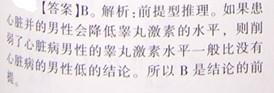 【答案】B。解析:前提型推理。如果患
心脏并的男性会降低睾丸激素的水平，则削
弱了心脏病男性的睾丸激素水平一般比没有
心脏病的男性低的结论。所以B是结论的前
提。